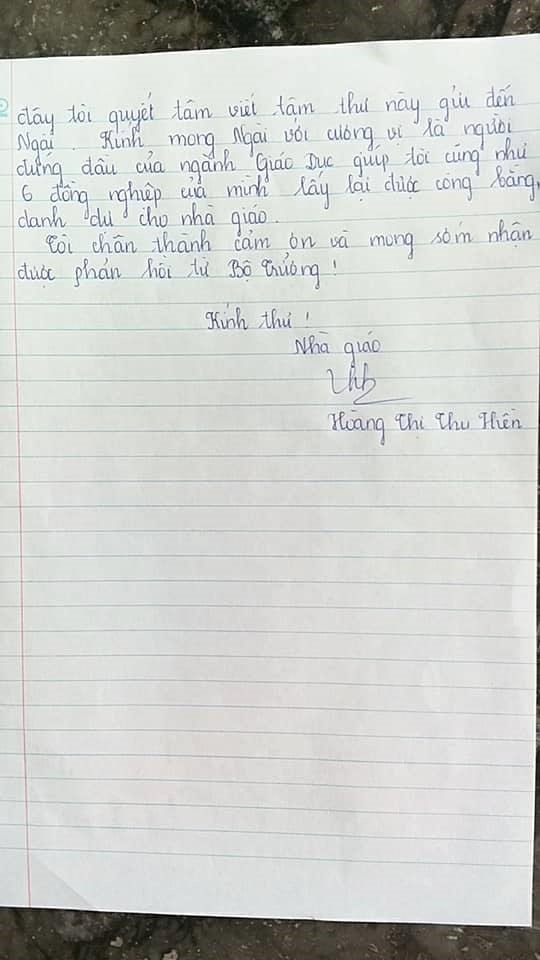 đây tôi quyết tâm viết tâm thư này gửi đến
Ngài. Kính mong Ngài với cương vị là người
đứng đầu của ngành Giáo Dục giúp tôi cũng như
6 đồng nghiệp của mình lấy lại được công bằng,
danh dự cho nhà giáo.
Tôi chân thành cảm ơn và mong sớm nhận
được phản hồi từ Bộ Trưởng!
Kính thư!
Nhà giáo
Hoàng Thị Thu Hiền